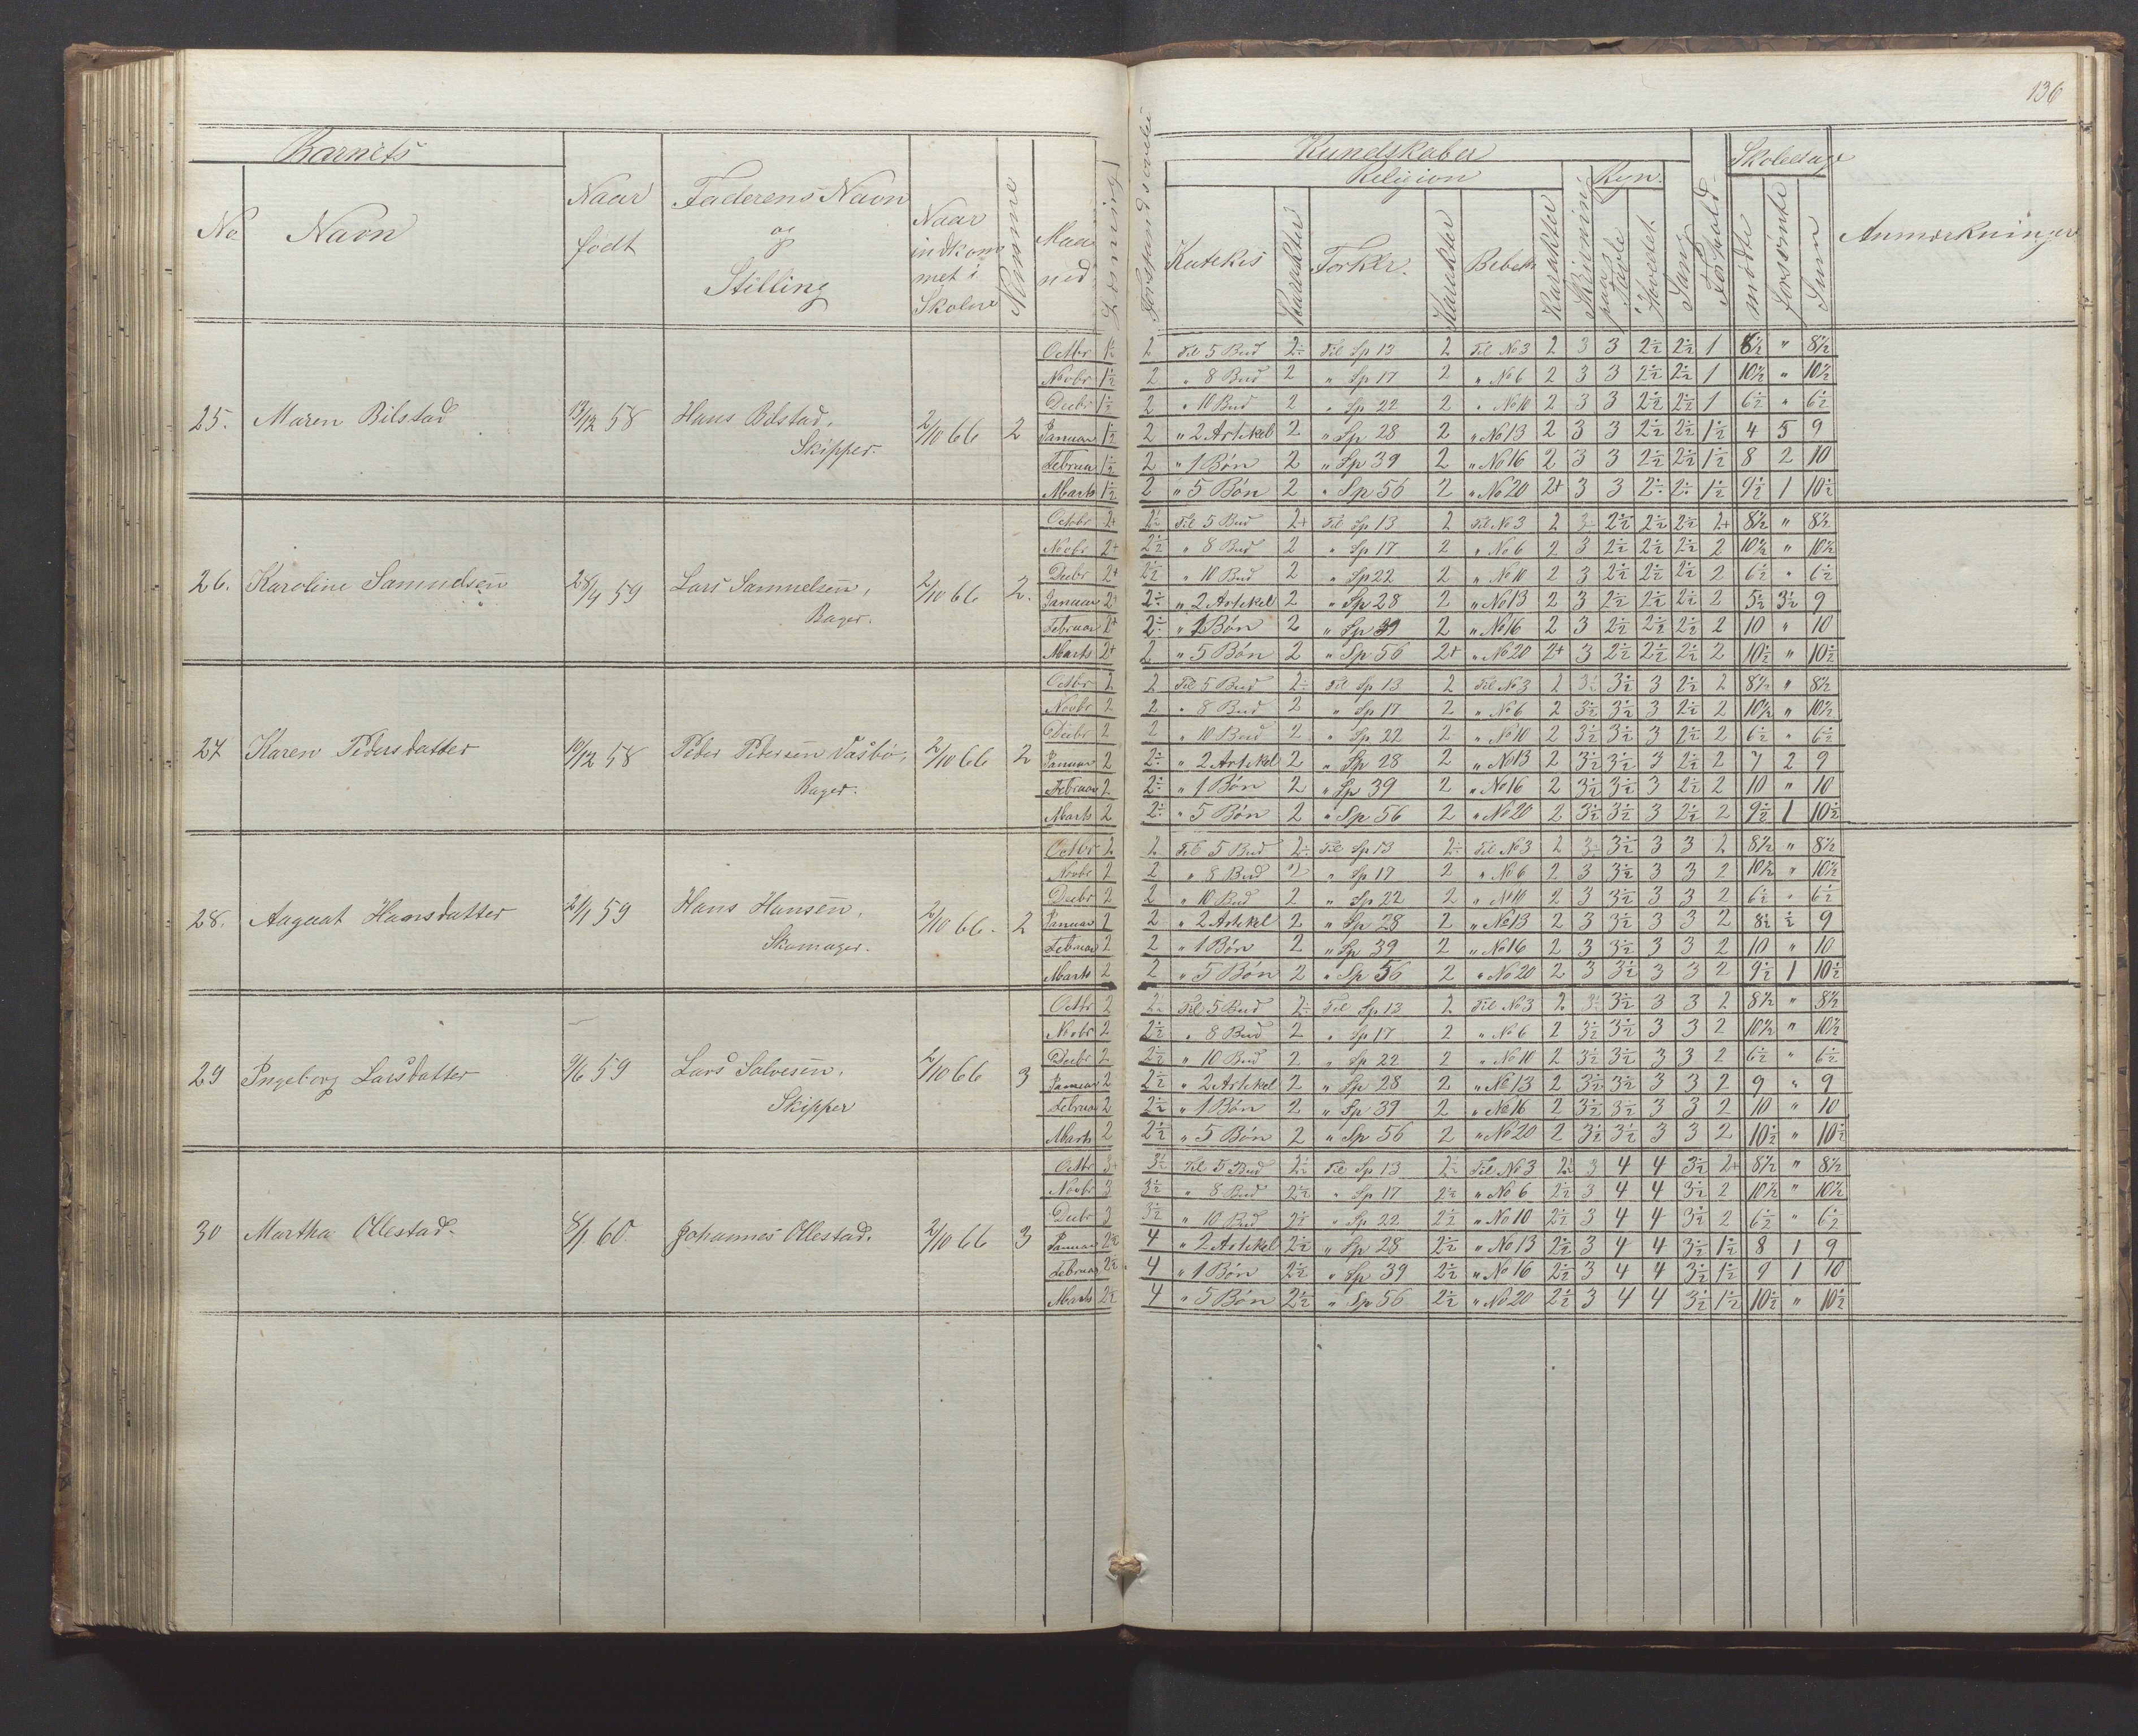 136
Barnets
No
Navn
Naar
født
Faderens Navn
og
Stilling
Naar
indkom
met i
Skolen
Maa
ned
Kundskaber
Religion
Katekis
Karakter
Forklr.
Karakter
Karakter
Skrivning
Regn.
paa
Tavle
Hovedet
Sang
Forhold
Skoledage
mødte
forsømte
Sum
Anmærkninger
25. Maren Bilstad 13/12 58 Hans Bilstad, 2/10 66 2
Skipper.
Octbr 1½ 2 Til 5 Bud 2÷ Til Sp 13 2 Til No 3 2 3 3 2½ 2½ 1 8½ " 8½
Novbr 1½ 2 " 8 Bud 2 " Sp 17 2 " No 6 2 3 3 2½ 2½ 1 10½ " 10½
Decbr 1½ 2 " 10 Bud 2 " Sp 22 2 " No 10 2 3 3 2½ 2½ 1 6½ " 6½
Januar 1½ 2 " 2 Artikel 2 " Sp 28 2 " No 13 2 3 3 2½ 2½ 1½ 4 5 9
Februar 1½ 2 " 1 Bøn 2 " Sp 39 2 " No 16 2 3 3 2½ 2½ 1½ 8 2 10
Marts 1½ 2 " 5 Bøn 2 " Sp 56 2 " No 20 2+ 3 3 2÷ 2÷ 1½ 9½ 1 10½
26. Karoline Samuelsen 28/4 59 Lars Samuelsen, 2/10 66 2.
Bager.
Octbr 2+ 2½ Til 5 Bud 2+ Til Sp 13 2 Til No 3 2 3÷ 2½ 2½ 2½ 2+ 8½ " 8½
Novbr 2+ 2½ " 8 Bud 2 " Sp 17 2 " No 6 2 3 2½ 2½ 2½ 2 10½ " 10½
Decbr 2+ 2½ " 10 Bud 2 " Sp 22 2 " No 10 2 3 2½ 2½ 2½ 2 6½ " 6½
Januar 2+ 2÷ " 2 Artikel 2 " Sp 28 2 " No 13 2 3 2½ 2½ 2½ 2 5½ 3½ 9
Februar 2+ 2÷ " 1 Bøn 2 " Sp 39 2 " No 16 2 3 2½ 2½ 2½ 2 10 " 10
Marts 2+ 2 " 5 Bøn 2 " Sp 56 2+ " No 20 2+ 3 2½ 2½ 2½ 2 10½ " 10½
27 Karen Pedersdatter 19/12 58 Peder Pedersen Vasbø, 2/10 66 2
Bager.
Octbr 2 2 Til 5 Bud 2÷ Til Sp 13 2 Til No 3 2 3½ 3½ 3 2½ 2 8½ " 8½
Novbr 2 2 " 8 Bud 2 " Sp 17 2 " No 6 2 3½ 3½ 3 2½ 2 10½ " 10½
Decbr 2 2 " 10 Bud 2 " Sp 22 2 " No 10 2 3½ 3½ 3 2½ 2 6½ " 6½
Januar 2 2÷ " 2 Artikel 2 " Sp 28 2 " No 13 2 3½ 3½ 3 2½ 2 7 2 9
Februar 2 2÷ " 1 Bøn 2 " Sp 39 2 " No 16 2 3½ 3½ 3 2½ 2 10 " 10
Marts 2 2÷ " 5 Bøn 2 " Sp 56 2 " No 20 2 3½ 3½ 3 2½ 2 9½ 1 10½
28. Hansdatter 21/1 59 Hans Hansen, 2/10 66. 2
Skomager.
Octbr 2 2 Til 5 Bud 2÷ Til Sp 13 2÷ Til No 3 2 3÷ 3½ 3 3 2 8½ " 8½
Novbr 2 2 " 8 Bud 2 " Sp 17 2 " No 6 2 3 3½ 3 3 2 10½ " 10½
Decbr 2 2 " 10 Bud 2 " Sp 22 2 " No 10 2 3 3½ 3 3 2 6½ " 6½
Januar 2 2 " 2 Artikel 2 " Sp 28 2 " No 13 2 3 3½ 3 3 2 8½ ½ 9
Februar 2 2 " 1 Bøn 2 " Sp 39 2 " No 16 2 3 3½ 3 3 2 10 " 10
Marts 2 2 " 5 Bøn 2 " Sp 56 2 " No 20 2 3 3½ 3 3 2 9½ 1 10½
29 Ingeborg Larsdatter 9/6 59 Lars Salvesen, 2/10 66 3
Skipper
Octbr 2 2½ Til 5 Bud 2÷ Til Sp 13 2 Til No 3 2 3÷ 3½ 3 3 2 8½ " 8½
Novbr 2 2½ " 8 Bud 2 " Sp 17 2 " No 6 2 3½ 3½ 3 3 2 10½ " 10½
Decbr 2 2½ " 10 Bud 2 " Sp 22 2 " No 10 2 3½ 3½ 3 3 2 6½ " 6½
Januar 2 2½ " 2 Artikel 2 " Sp 28 2 " No 13 2 3½ 3½ 3 3 2 9 " 9
Februar 2 2½ " 1 Bøn 2 " Sp 39 2 " No 16 2 3½ 3½ 3 3 2 10 " 10
Marts 2 2½ " 5 Bøn 2 " Sp 56 2 " No 20 2 3½ 3½ 3 3 2 10½ " 10½
30 Martha Ollestad. 8/1 60 Johannes Ollestad. 2/10 66 3
Octbr 3+ 3½ Til 5 Bud 2½ Til Sp 13 2½ Til No 3 2½ 3 4 4 3½ 2+ 8½ " 8½
Novbr 3 3½ " 8 Bud 2½ " Sp 17 2½ " No 6 2½ 3 4 4 3½ 2 10½ " 10½
Decbr 3 3½ " 10 Bud 2½ " Sp 22 2½ " No 10 2½ 3 4 4 3½ 2 6½ " 6½
Januar 2½ 4 " 2 Artikel 2½ " Sp 28 2½ " No 13 2½ 3 4 4 3½ 1½ 8 1 9
Februar 2½ 4 " 1 Bøn 2½ " Sp 39 2½ " No 16 2½ 3 4 4 3½ 1½ 9 1 10
Marts 2½ 4 " 5 Bøn 2½ " Sp 56 2½ " No 20 2½ 3 4 4 3½ 1½ 10½ " 10½